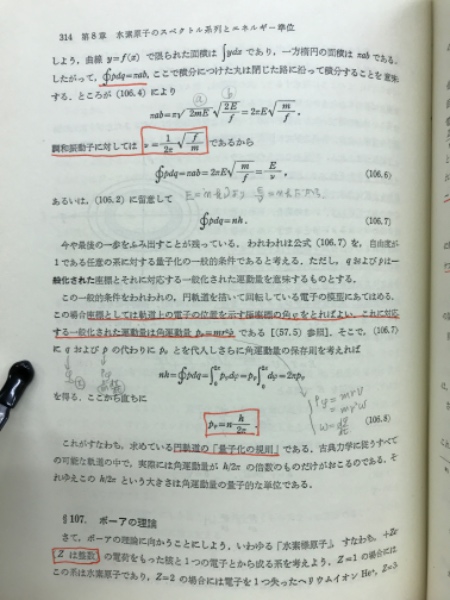 314 第8章 水素原子のスペクトル系列とエネルギー準位
しよう。曲線 y=f(x) で限られた面積は ∫ydx であり，一方楕円の面積は πab である。
したがって，∮pdq=πab, ここで積分につけた丸は閉じた路に沿って積分することを意味
する。ところが (106.4) により
ⓐ ⓑ
πab=π√2mE √(2E/f)=2πE√(m/f).
調和振動子に対しては ν=(1/2π)√(f/m) であるから
∮pdq=πab=2πE√(m/f)=E/ν. (106.6)
あるいは，(106.2) に留意して
∮pdq=nh. (106.7)
今や最後の一歩をふみ出すことが残っている。われわれは公式 (106.7) を，自由度が
1である任意の系に対する量子化の一般的条件であると考える。ただし，qおよびpは一
般化された座標とそれに対応する一般化された運動量を意味するものとする。
この一般的条件をわれわれの，円軌道を描いて回転している電子の模型にあてはめる。
この場合座標としては軌道上の電子の位置を示す極座標の角φをとればよい。これに対応
する一般化された運動量は角運動量 pφ=mr²φ̇ である [(57.5) 参照]。そこで，(106.7)
に q および p の代わりに pφ とを代入しさらに角運動量の保存則を考えれば
nh=∮pdq=∫₀²π pφdφ=pφ∫₀²π dφ=2πpφ
を得る。ここから直ちに
pφ=mrv
=mr²w
w=dφ/dt
pφ=n h/2π. (106.8)
これがすなわち，求めている円軌道の「量子化の規則」である。古典力学に従うすべて
の可能な軌道の中で，実際には角運動量が h/2π の倍数のものだけがおこるのである。そ
れゆえこの h/2π という大きさは角運動量の量子的な単位である。
§107. ボーアの理論
さて，ボーアの理論に向かうことにしよう。いわゆる「水素様原子」，すなわち，+Ze
(Z は整数) の電荷をもった核と1つの電子とから成る系を考えよう。Z=1 の場合には
この系は水素原子であり，Z=2 の場合には電子を1つ失ったヘリウムイオン He⁺, Z=3